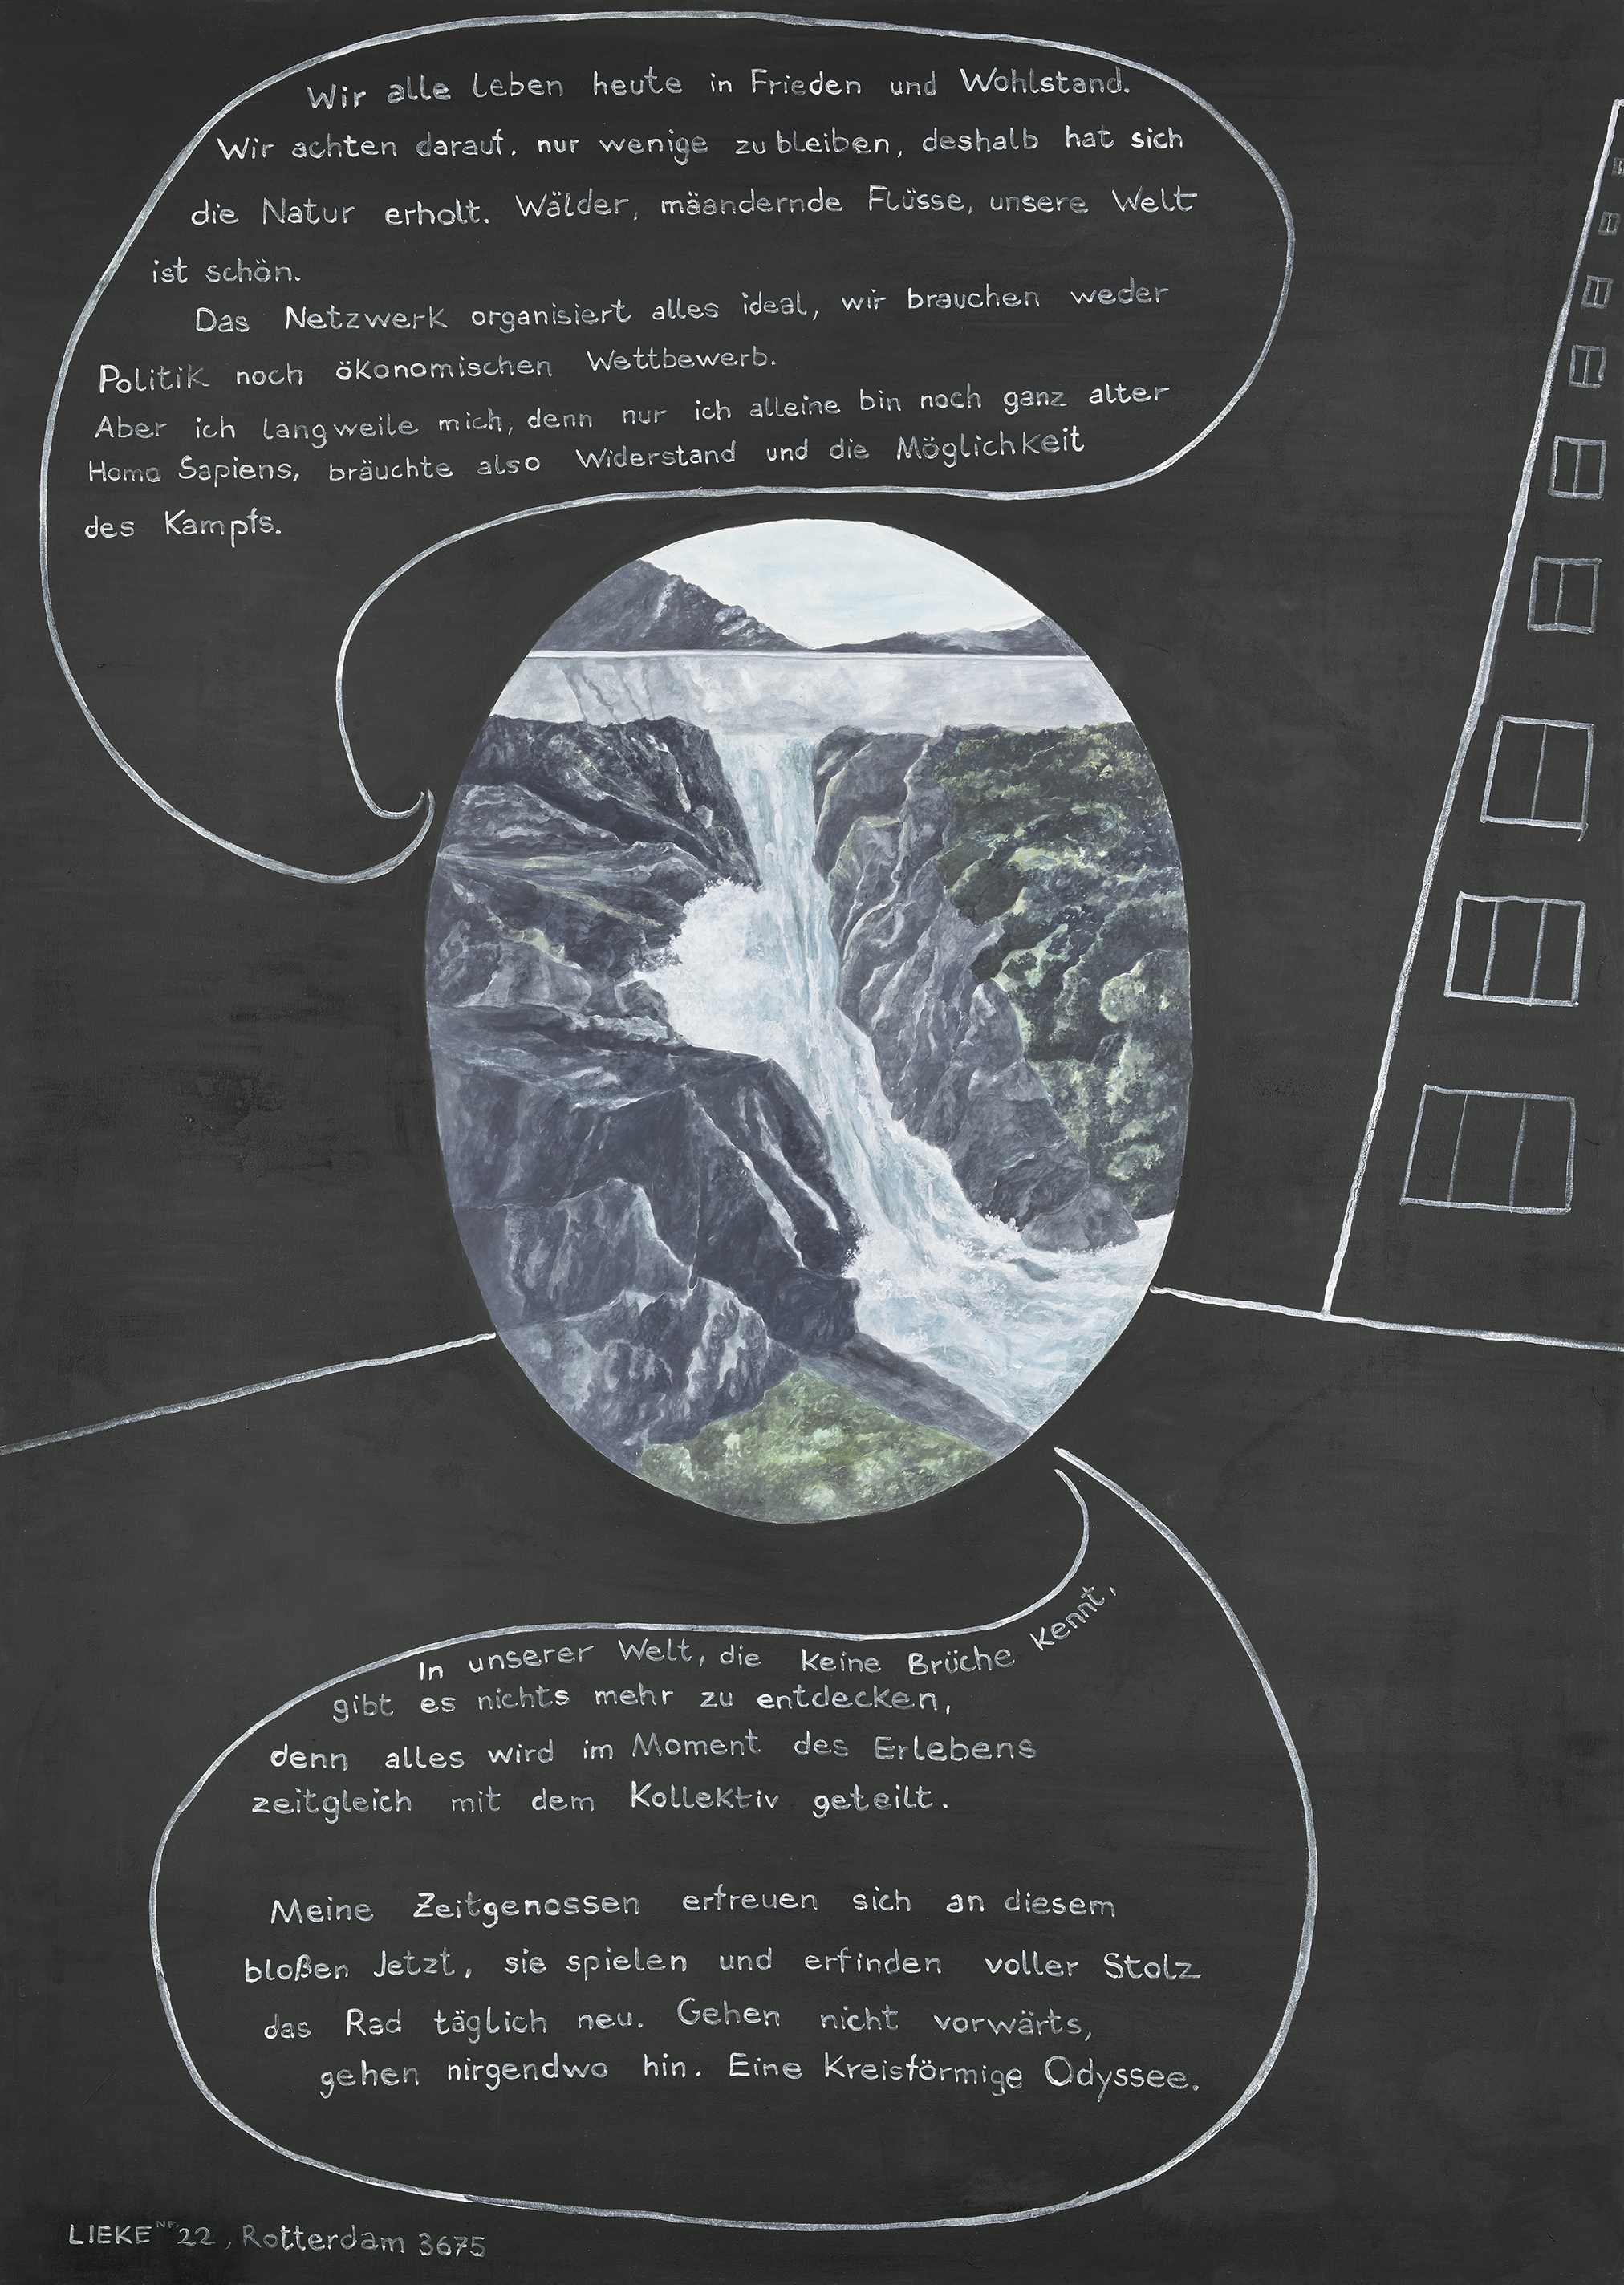 Wir alle leben heute in Frieden und Wohlstand.
Wir achten darauf, nur wenige zu bleiben, deshalb hat sich
die Natur erholt. Wälder, mäandernde Flüsse, unsere Welt
ist schön.
Das Netzwerk organisiert alles ideal, wir brauchen weder
Politik noch ökonomischen Wettbewerb.
Aber ich langweile mich, denn nur ich alleine bin noch ganz alter
Homo Sapiens, bräuchte also Widerstand und die Möglichkeit
des Kampfs.
In unserer Welt, die keine Brüche kennt,
gibt es nichts mehr zu entdecken,
denn alles wird im Moment des Erlebens
zeitgleich mit dem Kollektiv geteilt.
Meine Zeitgenossen erfreuen sich an diesem
bloßen Jetzt, sie spielen und erfinden voller Stolz
das Rad täglich neu. Gehen nicht vorwärts,
gehen nirgendwo hin. Eine Kreisförmige Odyssee.
LIEKE NF 22, Rotterdam 3675